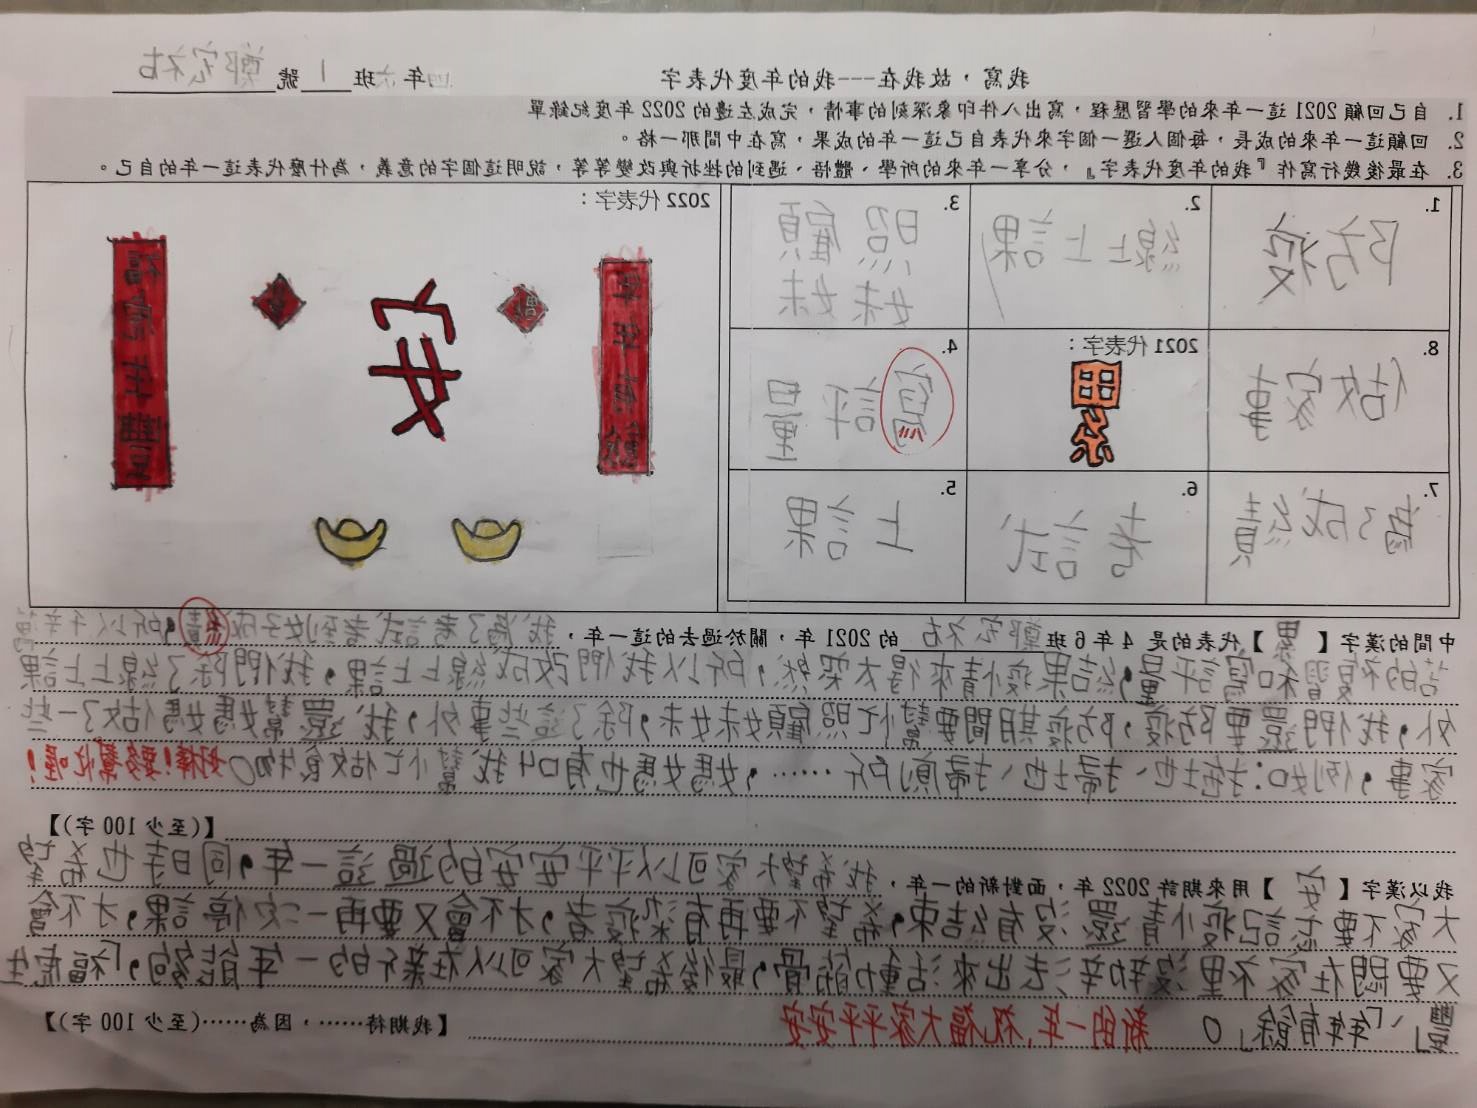 我寫，故我在---我的年度代表字
四年六班 1 號 鄭宏祐
1. 自己回顧 2021 這一年來的學習歷程，寫出八件印象深刻的事情，完成左邊的 2022 年度紀錄單
2. 回顧這一年來的成長，每個人選一個字來代表自己這一年的成果，寫在中間那一格。
3. 在最後幾行寫作『我的年度代表字』，分享一年來的所學、體悟、遇到的挫折與改變等等，說明這個字的意義，為什麼代表這一年的自己。
1.
防疫
2.
線上上課
3.
照顧
妹妹
8.
做家
事
2021 代表字：
累
4.
寫評
量
7.
為了成績
6.
考試
5.
上課
2022 代表字：
年年有餘
福
安
福虎生豐
中間的漢字【 累 】代表的是 4 年 6 班 鄭宏祐 的 2021 年，關於過去的這一年，我為了考試考到好成績，所以千辛萬
苦的複習和寫評量，結果疫情來得太突然，所以我們改成線上上課，我們除了線上上課
外，我們還要防疫，防疫其間要幫忙照顧妹妹，除了這些事外，我還幫媽媽做了一些
家事，例如：拖地、掃地、掃廁所……，媽媽也有叫我幫忙做食物。好棒！要多幫忙喔！
【(至少 100 字)】
我以漢字【 安 】用來期許 2022 年，面對新的一年，我希望大家可以平平安安的過這一年，同時也希望
大家不要忘記疫情還沒有結束，希望不要再有染疫者，才不會又要再一次停課，才不會
又要悶在家裡沒辦法出來活動筋骨，最後希望大家可以在新的一年能夠，「福虎生
豐」、「年年有餘」。 新的一年，祝福大家平平安安
【我期待……，因為……(至少 100 字)】